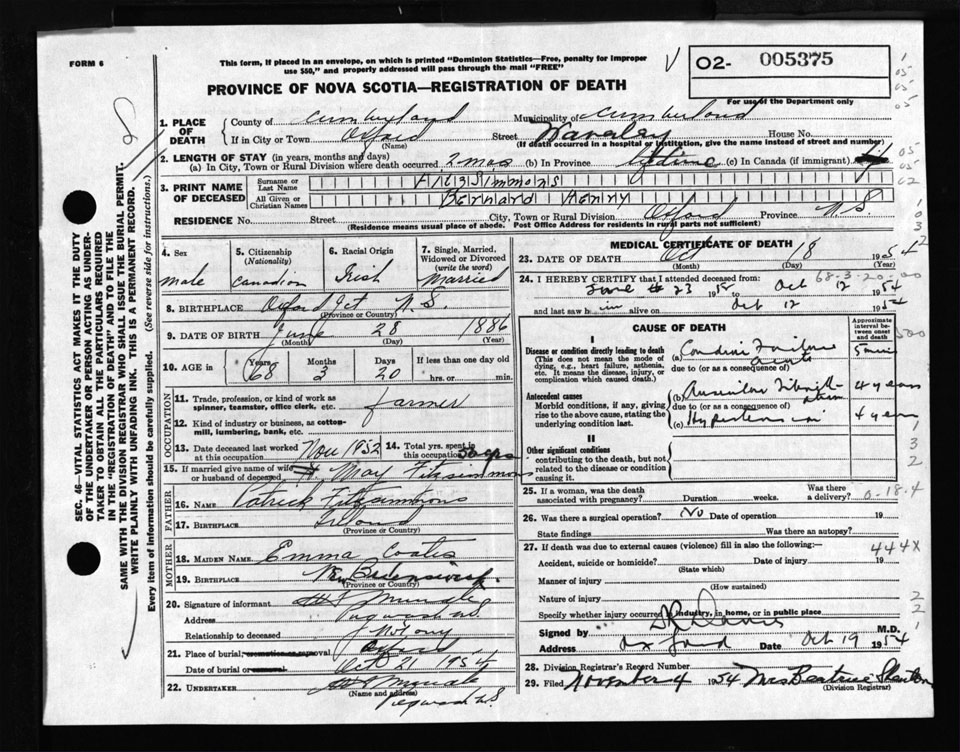 FORM 6
This form, if placed in an envelope, on which is printed "Dominion Statistics—Free, penalty for improper
use $50," and properly addressed will pass through the mail "FREE"
O2- 005375
PROVINCE OF NOVA SCOTIA—REGISTRATION OF DEATH
For use of the Department only
1. PLACE OF DEATH
County of Cumberland Municipality of Cumberland
If in City or Town Oxford Street Waverley House No.
(Name) (If death occurred in a hospital or institution, give the name instead of street and number)
2. LENGTH OF STAY (in years, months and days)
(a) In City, Town or Rural Division where death occurred 2 mos (b) In Province lifetime (c) In Canada (if immigrant)
3. PRINT NAME OF DECEASED
Surname or Last Name Fitzsimmons
All Given or Christian Names Bernard Henry
RESIDENCE No. Street City, Town or Rural Division Oxford Province N.S.
(Residence means usual place of abode. Post Office Address for residents in rural parts not sufficient)
4. Sex
male
5. Citizenship
(Nationality)
Canadian
6. Racial Origin
Irish
7. Single, Married, Widowed or Divorced
(write the word)
Married
8. BIRTHPLACE Oxford Jct N.S.
(Province or Country)
9. DATE OF BIRTH June 28 1886
(Month) (Day) (Year)
10. AGE in
Years 68
Months 3
Days 20
If less than one day old
hrs. or min.
OCCUPATION
11. Trade, profession, or kind of work as
spinner, teamster, office clerk, etc. farmer
12. Kind of industry or business, as cotton-
mill, lumbering, bank, etc.
13. Date deceased last worked
at this occupation Nov 1952
14. Total yrs. spent in
this occupation 50 yrs
15. If married give name of wife
or husband of deceased May Fitzsimmons
FATHER
16. NAME Patrick Fitzsimmons
17. BIRTHPLACE Ireland
(Province or Country)
MOTHER
18. MAIDEN NAME Emma Coates
19. BIRTHPLACE New Brunswick
(Province or Country)
20. Signature of informant
Address Pugwash N.S.
Relationship to deceased
21. Place of burial, cremation or removal Oxford
Date of burial or removal Oct 21 1954
22. UNDERTAKER
(Name and address)
Pugwash N.S.
MEDICAL CERTIFICATE OF DEATH
23. DATE OF DEATH Oct 18 1954
(Month) (Day) (Year)
68-3-20-00
24. I HEREBY CERTIFY that I attended deceased from:
June 23 19 to Oct 12 1954
and last saw him alive on Oct 12 1954
CAUSE OF DEATH
Approximate interval between onset and death
I
Disease or condition directly leading to death
(This does not mean the mode of dying, e.g., heart failure, asthenia, etc. It means the disease, injury, or complication which caused death.)
(a) Cardiac Failure acute 5 min
due to (or as a consequence of)
Antecedent causes
Morbid conditions, if any, giving rise to the above cause, stating the underlying condition last.
(b) Auricular Fibrillation 4 years
due to (or as a consequence of)
(c) Hypertension 4 years
II
Other significant conditions
contributing to the death, but not related to the disease or condition causing it.
25. If a woman, was the death
associated with pregnancy? Duration weeks. Was there a delivery?
0-18-4
26. Was there a surgical operation? No Date of operation 19
State findings Was there an autopsy?
27. If death was due to external causes (violence) fill in also the following:— 444X
Accident, suicide or homicide? Date of injury 19
(State which)
Manner of injury
(How sustained)
Nature of injury
Specify whether injury occurred in industry, in home, or in public place
Signed by Davis M.D.
Address Oxford Date Oct 19 1954
28. Division Registrar's Record Number
29. Filed November 4 1954 Mrs Beatrice
(Division Registrar)
SEC. 46—VITAL STATISTICS ACT MAKES IT THE DUTY
OF THE UNDERTAKER OR PERSON ACTING AS UNDER-
TAKER TO OBTAIN ALL THE PARTICULARS REQUIRED
IN THE "REGISTRATION OF DEATH" AND TO FILE THE
SAME WITH THE DIVISION REGISTRAR WHO SHALL ISSUE THE BURIAL PERMIT.
WRITE PLAINLY WITH UNFADING INK. THIS IS A PERMANENT RECORD.
Every item of information should be carefully supplied. (See reverse side for instructions.)